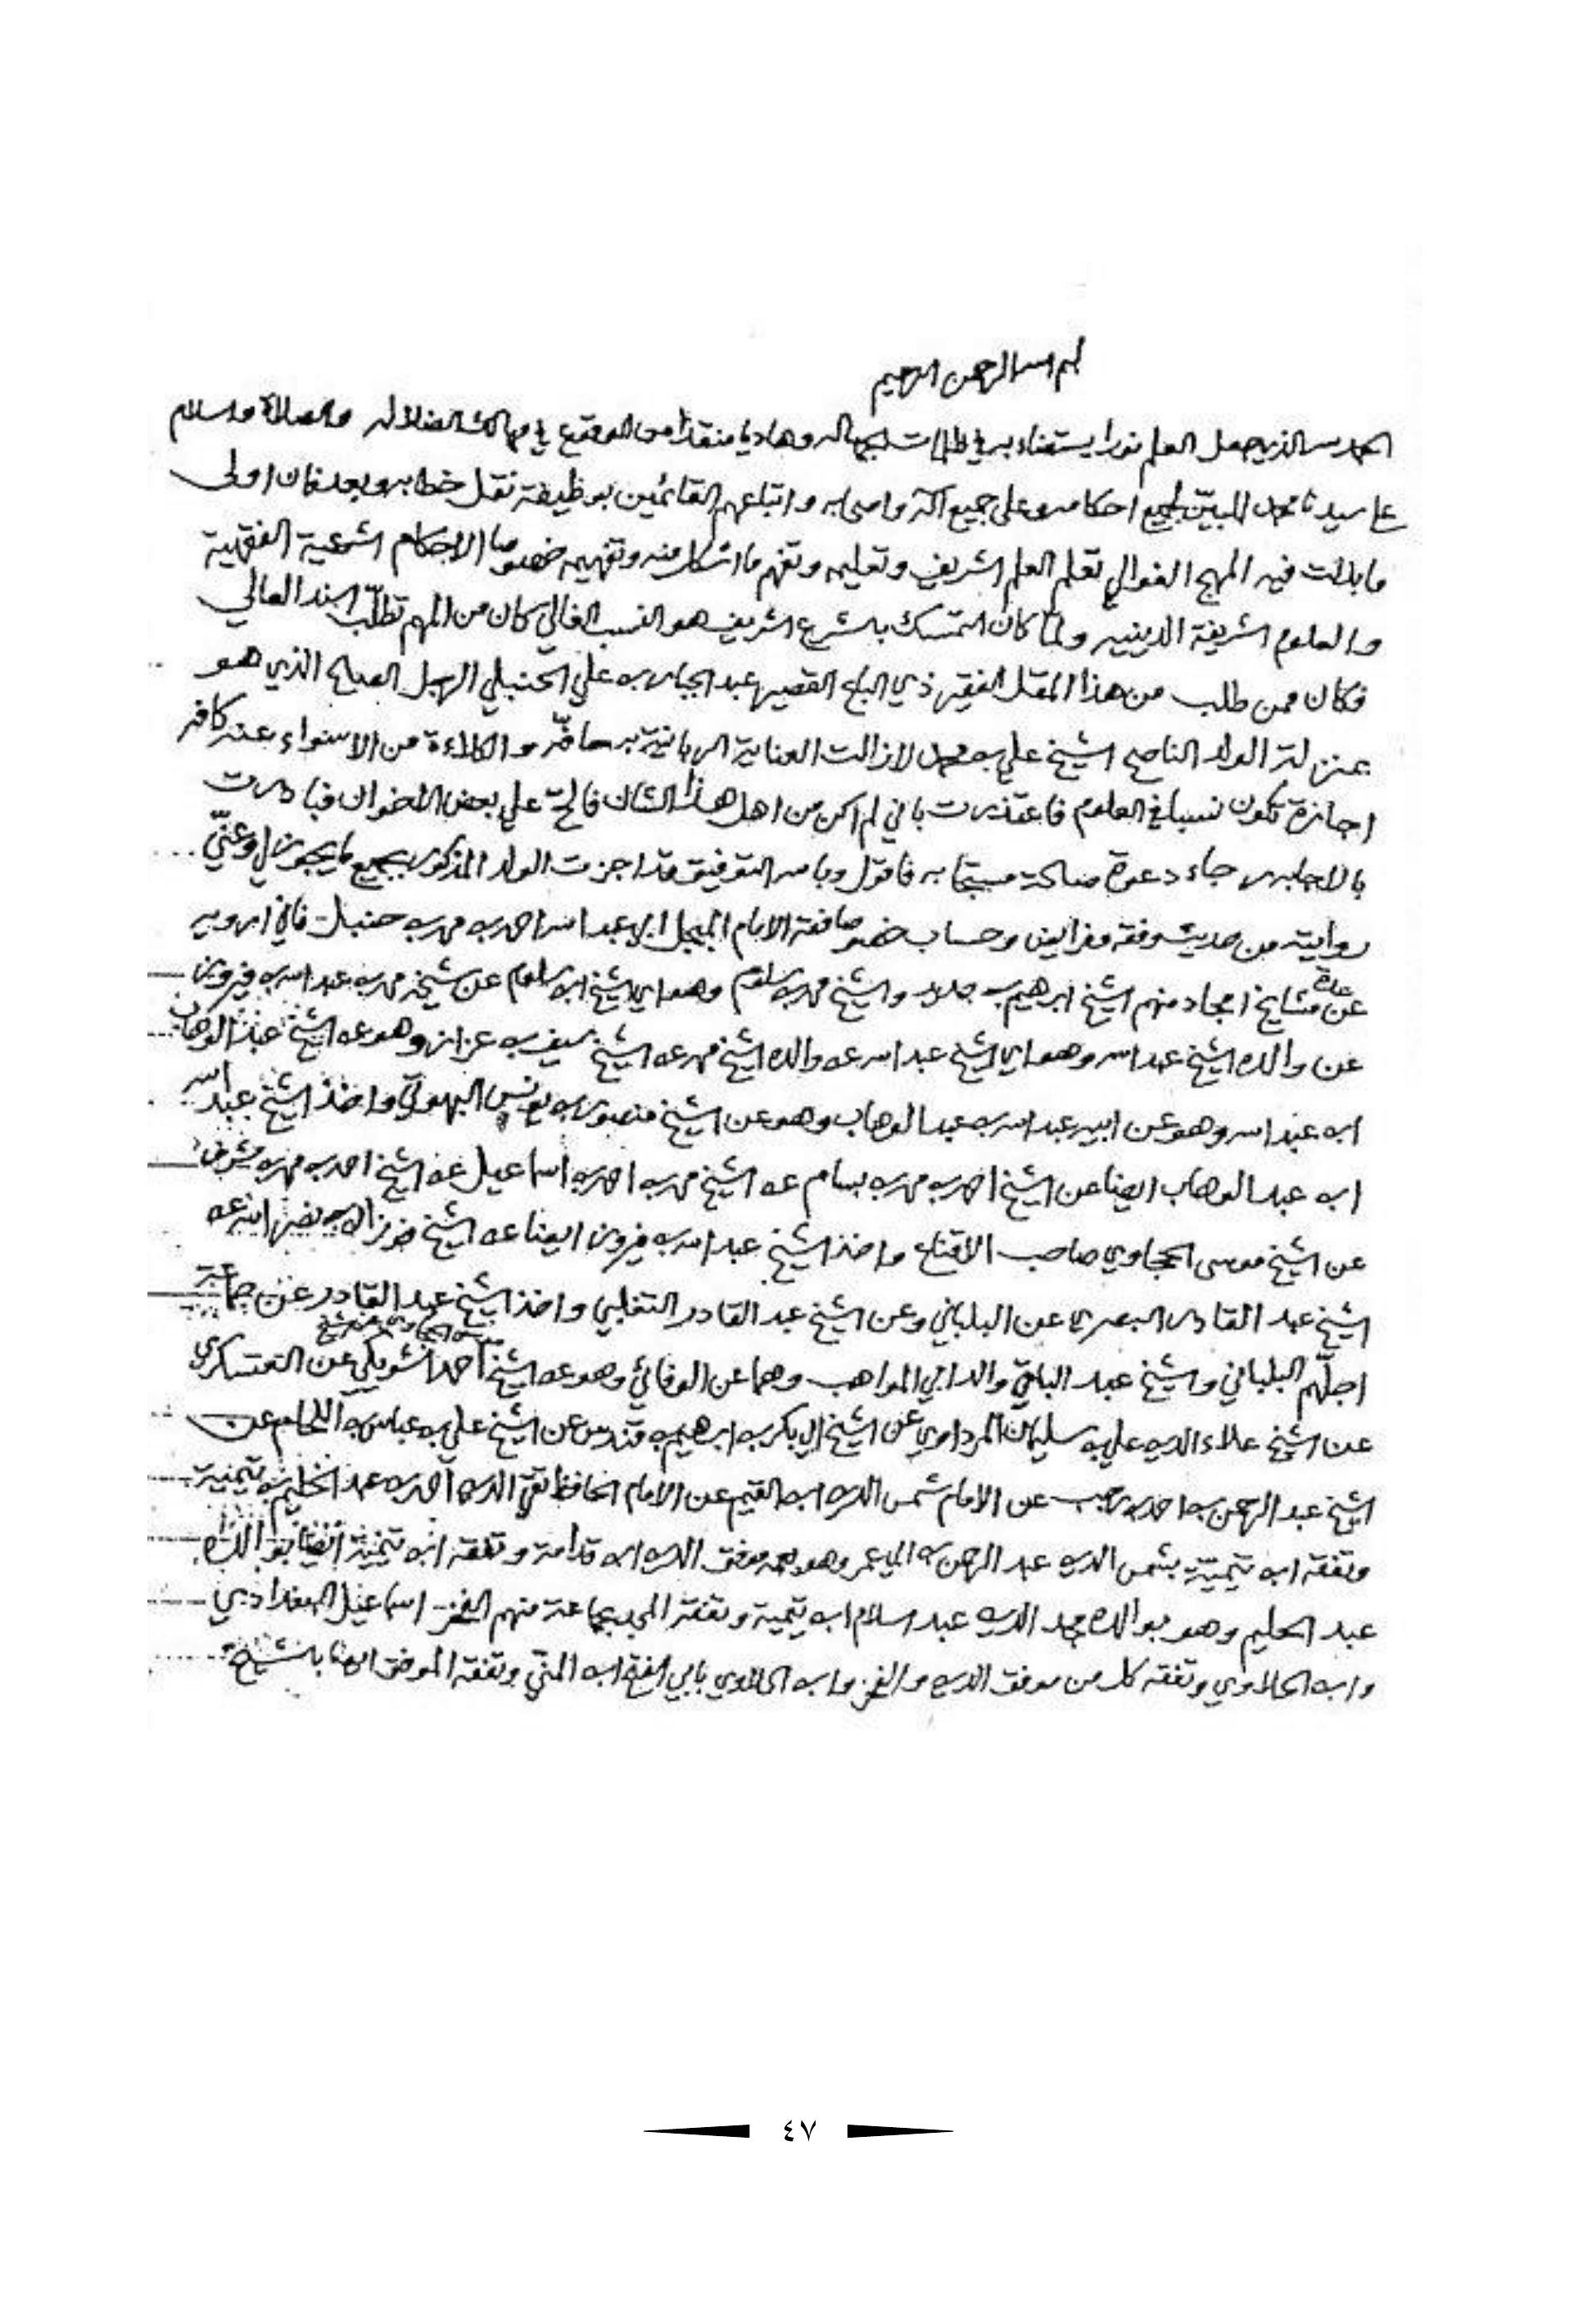 بسم الله الرحمن الرحيم
الحمد لله الذي جعل العلم نورا يستضاء به في ظلمات الجهالة وهاديا منقذا من الوقوع في مهالك الضلالة والصلاة والسلام
على سيدنا محمد المبيّن لجميع احكامه وعلى جميع آله واصحابه واتباعهم القائمين بوظيفة نقل خطابه وبعد فان اولى
ما بذلت فيه المهج الغوالي تعلم العلم الشريف وتعليمه وتفهم ما اشكل منه وتفهيمه خصوصا الاحكام الشرعية الفقهية
والعلوم الشريفة الدينيه ولمّا كان التمسك بالشرع الشريف هو النسب الغالي كان من المهم تطلّب السند العالي
فكان ممن طلب من هذا المقل الفقير ذي الباع القصير عبد الجبار به علي الحنبلي الرجل الصالح الذي هو
بمنزلة الولد الناصح الشيخ علي به محمد لازالت العناية الربانية به حافّه والكلاءة من الاسواء عنه كافه
اجازة تكون نسبا في العلوم فاعتذرت باني لم اكن من اهل هذا الشان فالحّ علي بعض الاخوان فبادرت
بالاجابه رجاء دعوة صالحة مستجابه فاقول وبالله التوفيق قد اجزت الولد المذكور بجميع ما يجوز لي وعنّي
روايته من حديث وفقه وفرائض وحساب خصوصا فقه الامام المبجل ابي عبد الله احمد به محمد به حنبل فاني ارويه
عن عدة مشايخ امجاد منهم الشيخ ابرهيم به جديد والشيخ محمد به سلوم وهو اي الشيخ ابه سلوم عن شيخه محمد به عبد الله به فيروز
عن والده الشيخ عبد الله وهو اي الشيخ عبد الله عه والده الشيخ محمد عه الشيخ سيف به عزاز وهو عه الشيخ عبد الوهاب
ابه عبد الله وهو عن ابيه عبد الله به عبد الوهاب وهو عن الشيخ منصور به يونس البهوتي واخذ الشيخ عبد الله
ابه عبد الوهاب ايضا عن الشيخ احمد به محمد به بسام عه الشيخ محمد به احمد به اسماعيل عه الشيخ احمد به محمد به مشرف
عن الشيخ موسى الحجاوي صاحب الاقناع واخذ الشيخ عبد الله به فيروز ايضا عه الشيخ فوزان به نصر الله عه
الشيخ عبد القادر البصري عن البلباني وعن الشيخ عبد القادر التغلبي واخذ الشيخ عبد القادر عن جماعة
اجلّهم البلباني والشيخ عبد الباقي والد ابي المواهب وهما عن الوفائي وهو عه الشيخ موسى الحجاوي عن الشيخ احمد الشويكي عن العسكري
عن الشيخ علاء الديه علي به سليمان المرداوي عن الشيخ ابي بكر به ابرهيم به قندس عن الشيخ علي به عباس به اللحام عن
الشيخ عبد الرحمن به احمد به رجب عن الامام شمس الديه ابه القيم عن الامام الحافظ تقي الديه احمد به عبد الحليم به تيمية
وتفقه ابه تيمية بشمس الديه عبد الرحمن به ابي عمر وهو بعمه موفق الديه ابه قدامة وتفقه ابه تيمية ايضا بوالده
عبد الحليم وهو بوالده مجد الديه عبد السلام ابه تيمية وتفقه المجد بجماعة منهم الفخر اسماعيل البغدادي
وابه الحلاوي وتفقه كل من موفق الديه والفخر وابه الحلاوي بابي الفتح ابه المنّي وتفقه الموفق ايضا بالشيخ
٤٧